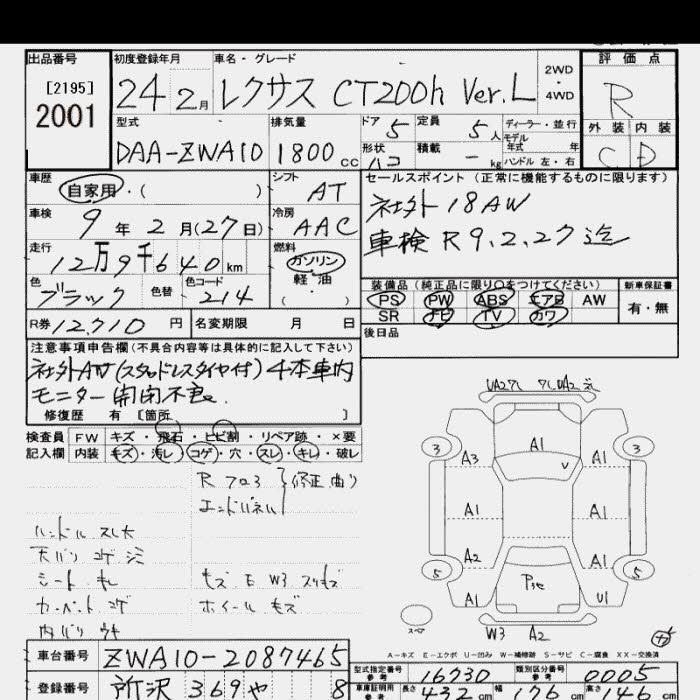 出品番号
[2195]
2001
初度登録年月
24 2月
車名・グレード
レクサス CT200h Ver.L
2WD
・
4WD
評価点
R
外装 内装
C D
型式
DAA-ZWA10
排気量
1800cc
ドア 5
定員 5人
ディーラー・並行
モデル年式 年
形状 ハコ
積載 - kg
ハンドル 左・右
車歴
自家用・( )
シフト
AT
車検
9年2月(27日)
冷房
AAC
走行
12万9千640km
燃料
ガソリン
軽油
( ・ )
色
ブラック
色替
色コード
214
R券 12,710円
名変期限 月 日
セールスポイント(正常に機能するものに限ります)
社外18AW
車検R9.2.27迄
装備品(純正品に限り〇をつけてください)
PS PW ABS エアB AW
SR ナビ TV カワ
新車保証書
有・無
後日品
注意事項申告欄(不具合内容等は具体的に記入して下さい)
社外AW(スタッドレスタイヤ付)4本車内
モニター開閉不良。
修復歴 有 [箇所 ]
検査員
記入欄
FW キズ・飛石・ヒビ割・リペア跡・×要
内装 キズ・汚レ・コゲ・穴・スレ・キレ・破レ
Rフロ3
エンドパネル
修正曲り
ハンドル スレ大
天バリ コゲ シミ
シート キレ
カーペット コゲ
内バリ ウキ
キズ E W3 スリキズ
ホイール キズ
A1
V
3 A3 A1 3
A1 A1
A2 A1
5 5
A1 U1
スペア
W3 A2
A-キズ E-エクボ U-凹み W-補修跡 S-サビ C-腐食 XX-交換済
車台番号
ZWA10-2087465
登録番号
所沢 369 や 8
型式指定番号
参考
16730
類別区分番号
参考
0005
車庫証明用
参考
長さ 432cm
幅 176cm
高さ 146cm